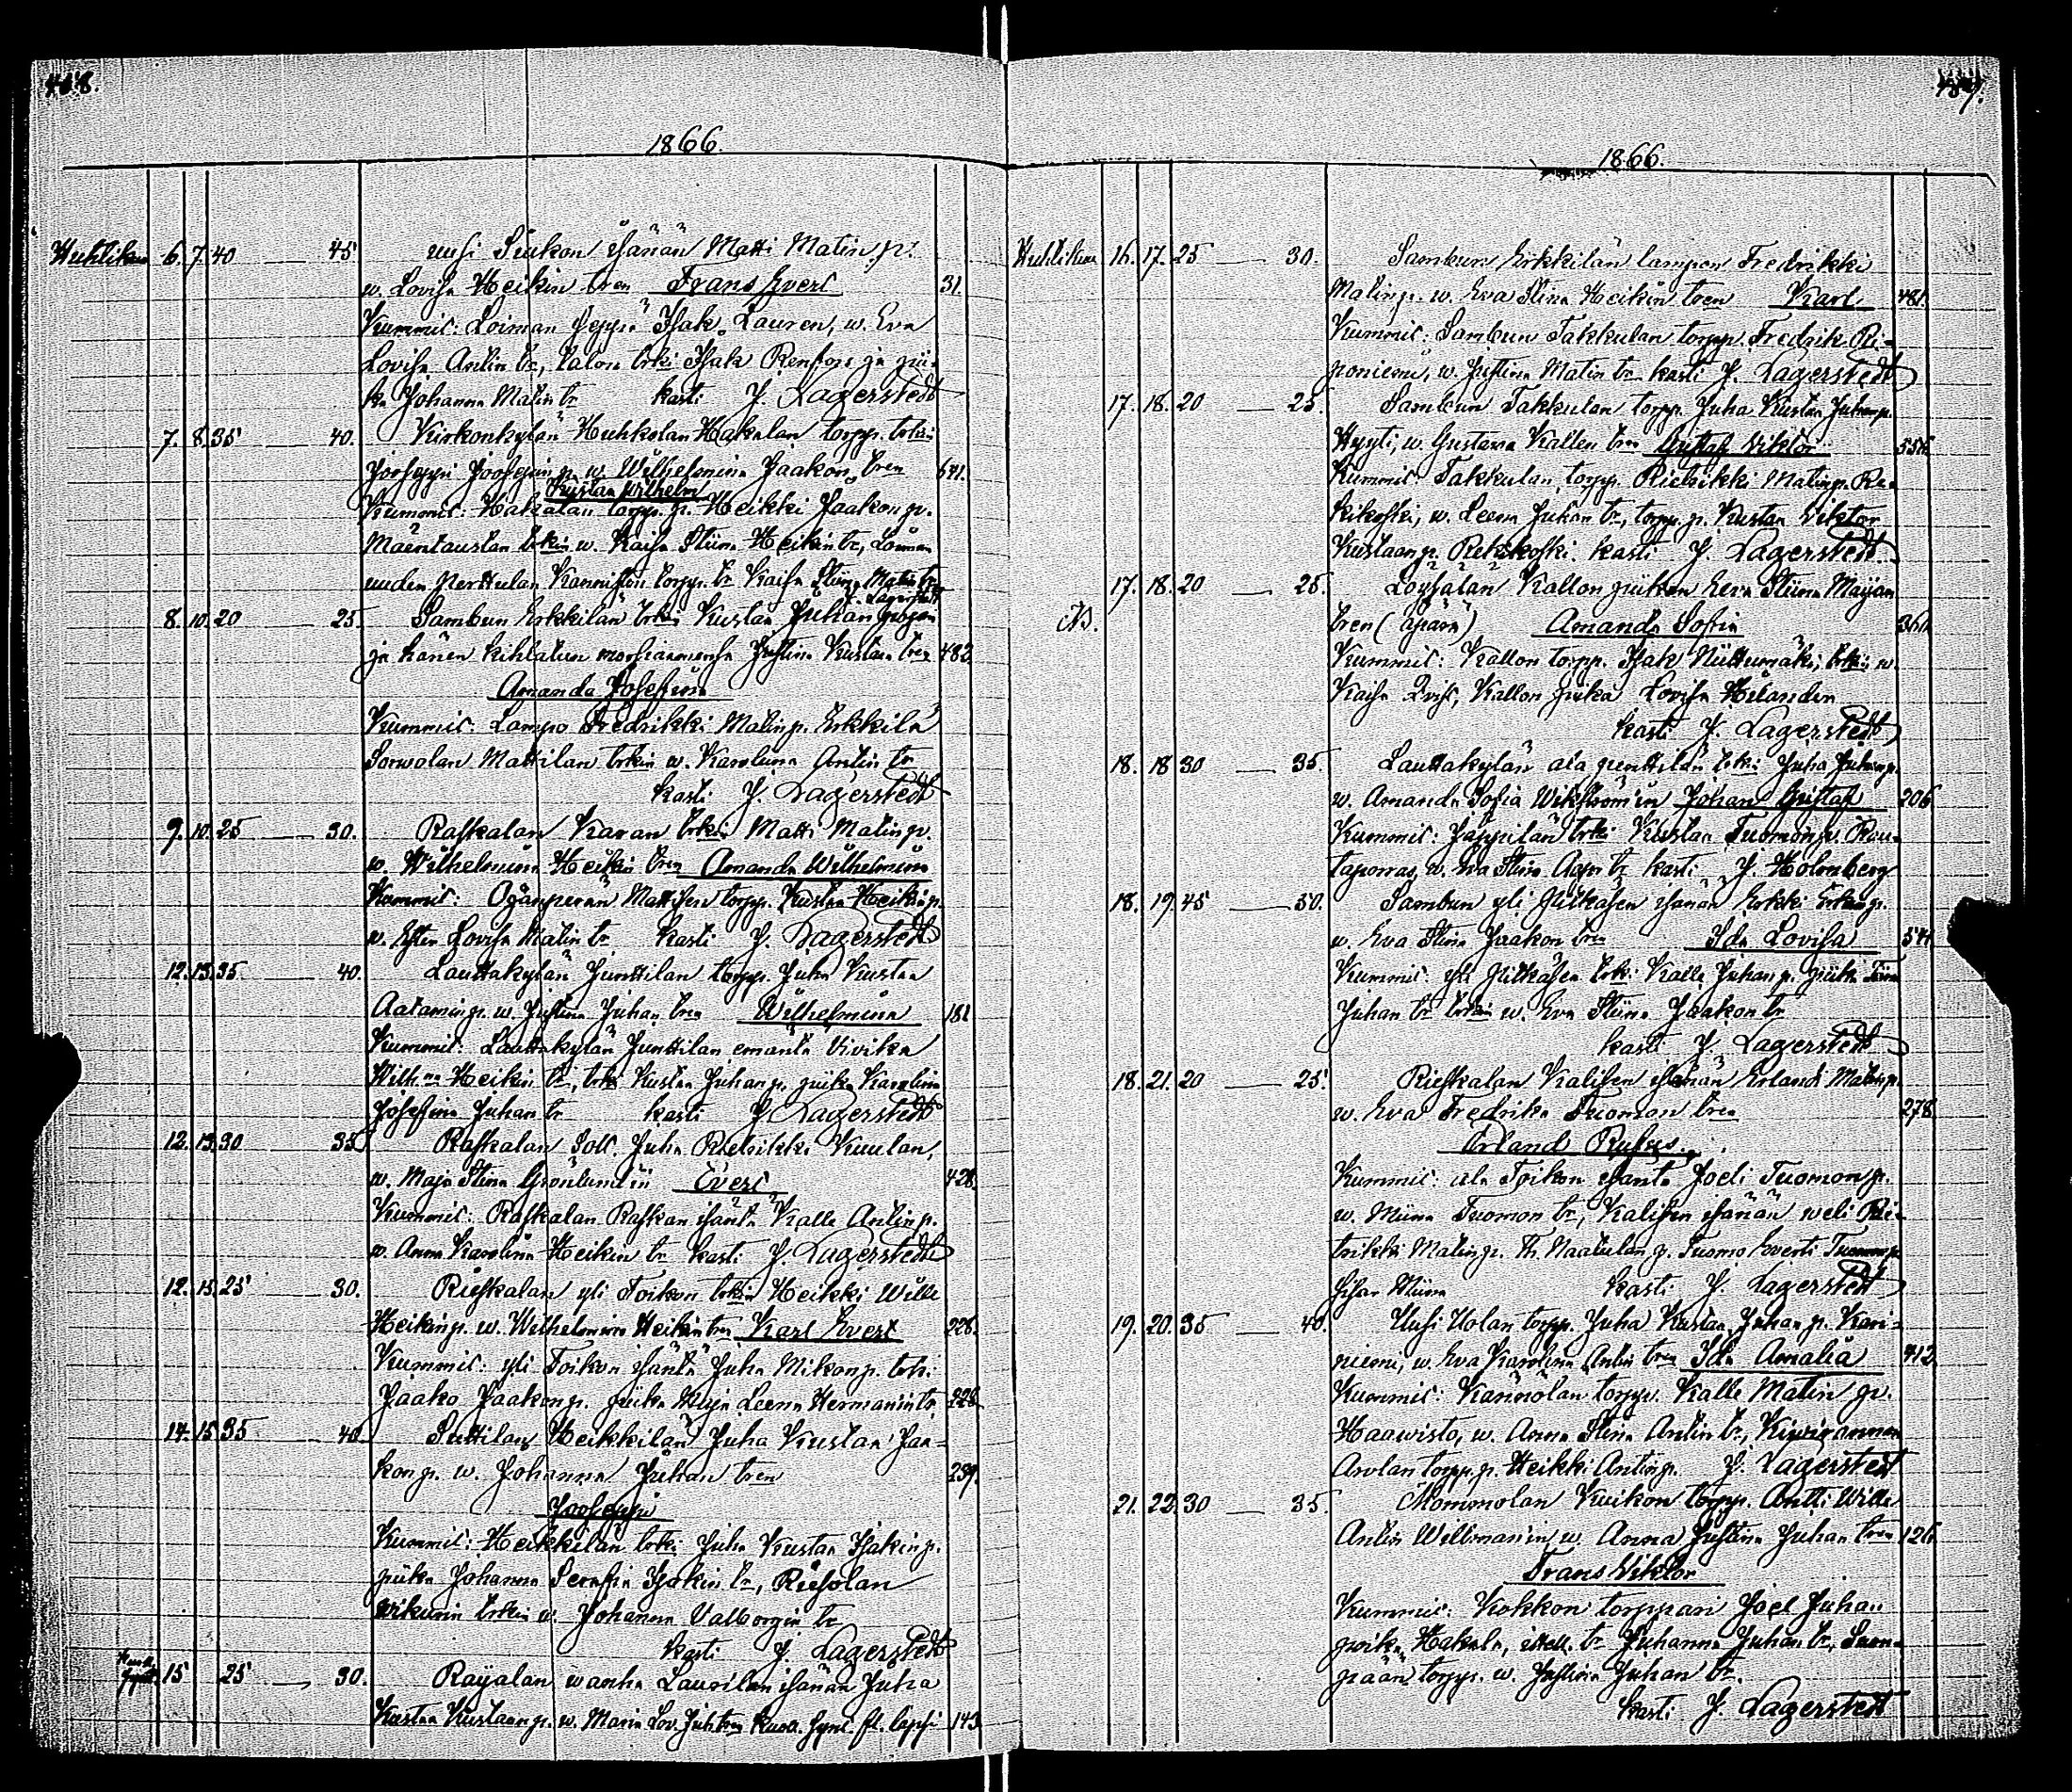 1866.
Huhtikuu 6. 7. 40 — 45 uusi Siukon isänän Matti Matin p.
w. Lovisa Heikin tren Frans Evert 31.
Kummit: Loiman seppä Isak Lauren, w. Eva
Lovisa Antin tr, talon trki Isak Renfors ja pii-
ka Johanna Matin tr kasti J. Lagerstedt
7. 8. 35 — 40. Kirkonkylän Huhkolan Hakalan torpp. trkin
Jooseppi Joosepin p. w. Wilhelmina Jaakon tren 641.
Kustaa Wilhelm
Kummit: Hakalan torpp. p. Heikki Jaakon p.
Mäentaustan trkin w. Kaisa Stiina Heikin tr, Loiman
uuden Perttulan Kanniston torpp. tr Kaisa Stiina Matin tr
J. Lagerstedt
8. 10. 20 — 25. Sambun Erkkilän trki Kustaa Juhan pojan
ja hänen kihlatun morsiamensa Justina Kustaan tren 482.
Amanda Josefina
Kummit: Lampo Fredrikki Matin p. Erkkilä
Sorwolan Mattilan trkin w. Karolina Antin tr
kasti J. Lagerstedt
9. 10. 25 — 30. Raskalan Karan trki Matti Matin p.
w. Wilhelmina Heikin tren Amanda Wilhelmina
Kummit: Ojanperän Mattilan torpp. Kustaa Heikin p.
w. Ester Lovisa Matin tr kasti J. Lagerstedt
12. 13. 35 — 40. Lauttakylän Junttilan torpp. Juha Kustaa
Aatamin p. w. Justina Juhan tren Wilhelmiina 181
Kummit: Lauttakylän Junttilan emäntä Vivika
Wilh:na Heikin tr, trki Kustaa Juhan p. piika Karolina
Josefina Juhan tr kasti J. Lagerstedt
12. 13. 30 — 35. Raskalan Sott. Juha Rietrikki Kuulan,
w. Maja Stiina Grönlundin Evert 428.
Kummit: Raskalan Raskan isäntä Kalle Antin p.
w. Anna Karolina Heikin tr kasti J. Lagerstedt
12. 15. 25 — 30. Rieskalan yli Toikon trkin Heikki Wille
Heikin p. w. Wilhelmina Heikin tren Karl Evert 228.
Kummit: yli Toikon isäntä Juha Mikon p. trki
Jaako Jaakon p. piika Maja Leena Hermanin tr 228
14. 15. 35 — 40. Suttilan Heikkilän Juha Kustaa Jaa-
kon p. w. Johanna Juhan tren 239.
Jooseppi
Kummit: Heikkilän trki Juha Kustaa Isakin p.
piika Johanna Serafia Isakin tr,
trkin w. Johanna Valborgin tr
kasti J. Lagerstedt
15 25 — 30. Raijalan wanha Laurilan isänän Juha
Kustaa Kustaan p. w. Maria Lov. Juh tren lapsi 143
1866.
Huhtikuu 16. 17. 25 — 30. Sambun Erkkilän lampon Fredrikki
Matin p. w. Eva Stina Heikin tren Karl 481.
Kummit: Sambun Takkulan torpp. Fredrik Ri-
poniemi, w. Justina Matin tr kasti J. Lagerstedt
17. 18. 20 — 25. Sambun Takkulan torpp. Juha Kustaa Juhan p.
Hyyti, w. Gustava Kallen tren Gustaf Viktor 556.
Kummit: Takkulan torpp. Rietrikki Matin p. Re-
kikoski, w. Leena Juhan tr, torpp. p. Kustaa Viktor
Kustaan p. Rekikoski. kasti J. Lagerstedt
17. 18. 20 — 25. Kallon piikan Eeva Stiina Maijan
tren (äpärä) Amanda Sofia 361
Kummit: Kallon torpp. Isak Niittumäki, trkin w.
Kaisa Qvist, Kallon piika Lovisa Helander
kasti J. Lagerstedt
18. 18 30 — 35. Lauttakylän ala penttilän trki Juha Juhan p.
w. Amanda Sofia Wikström'in Johan Gustaf 206
Kummit: Jäppilän trki Kustaa Tuomon p. Rau-
taporras, w. Eva Stina Aapr tr kasti J. Holmberg
18. 19. 45 — 50. Sambun yli isänän Erkki Erkin p.
w. Eva Stina Jaakon tren Ida Lovisa 541
Kummit: yli trki Kalle Juhan p. piika Tiina
Juhan tr trkin w. Eva Stiina Jaakon tr
kasti J. Lagerstedt
18. 21. 20 — 25. Rieskalan Kalisen isänän Erlandi Matin p.
w. Eva Fredrika Tuomon tren 278
Erland Rufus.
Kummit: ala Toikon isäntä Joeli Tuomon p.
w. Miina Tuomon tr, Kalisen isänän weli Rie-
trikki Matin p. Th. Naatulan p. Tuomo Everti Tuomon p.
sisar Miina kasti J. Lagerstedt
19. 20. 35 — 40. Uusi Uolan torpp. Juha Kustaa Juhan p. Kari-
niemi, w. Eva Karolina Antin tren Ida Amalia 412
Kummit: Kännölän torpp. Kalle Matin p.
Haawisto, w. Anna Stina Antin tr, Kiwirannan
Arolan torpp. p. Heikki Antin p. J. Lagerstedt
21. 22. 30 — 35. Mommolan Kuikon torpp. Antti Wille
Antin Willman'in, w. Anna Justina Juhan tren 126
Frans Viktor
Kummit: Kokkon torppari Joel Juhan
poika Hakala, itsell. tr Juhanna Juhan tr, Suon-
pään torpp. w. Justina Juhan tr.
kasti J. Lagerstedt